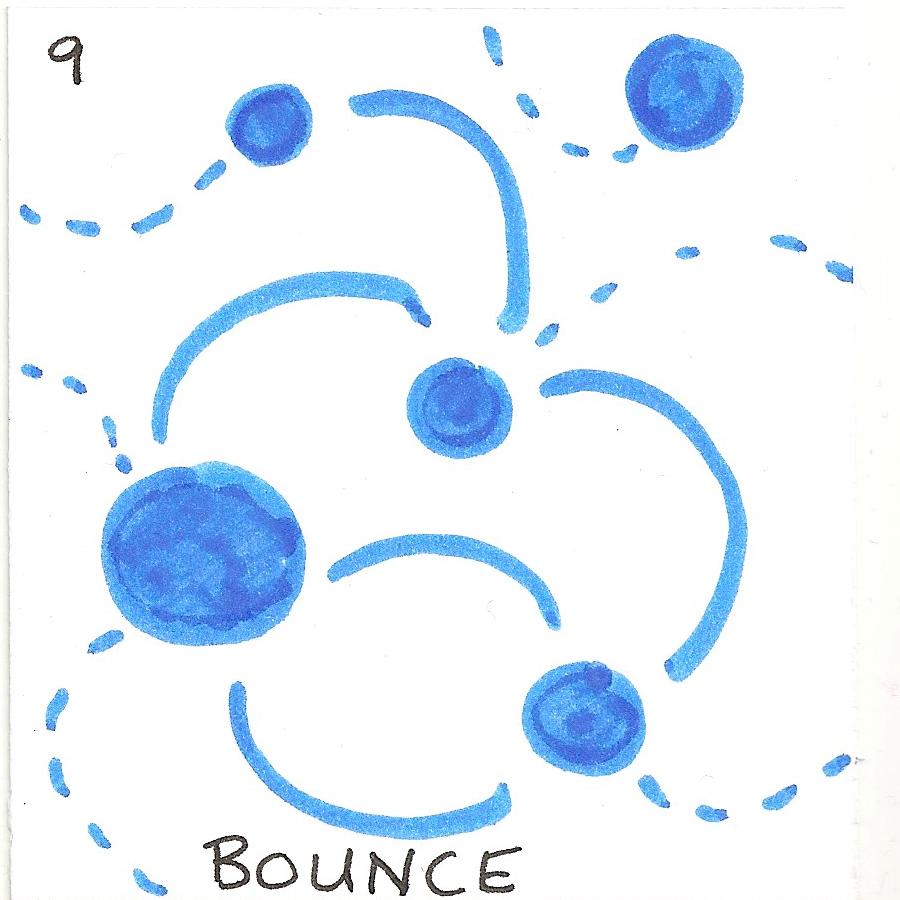 9
BOUNCE